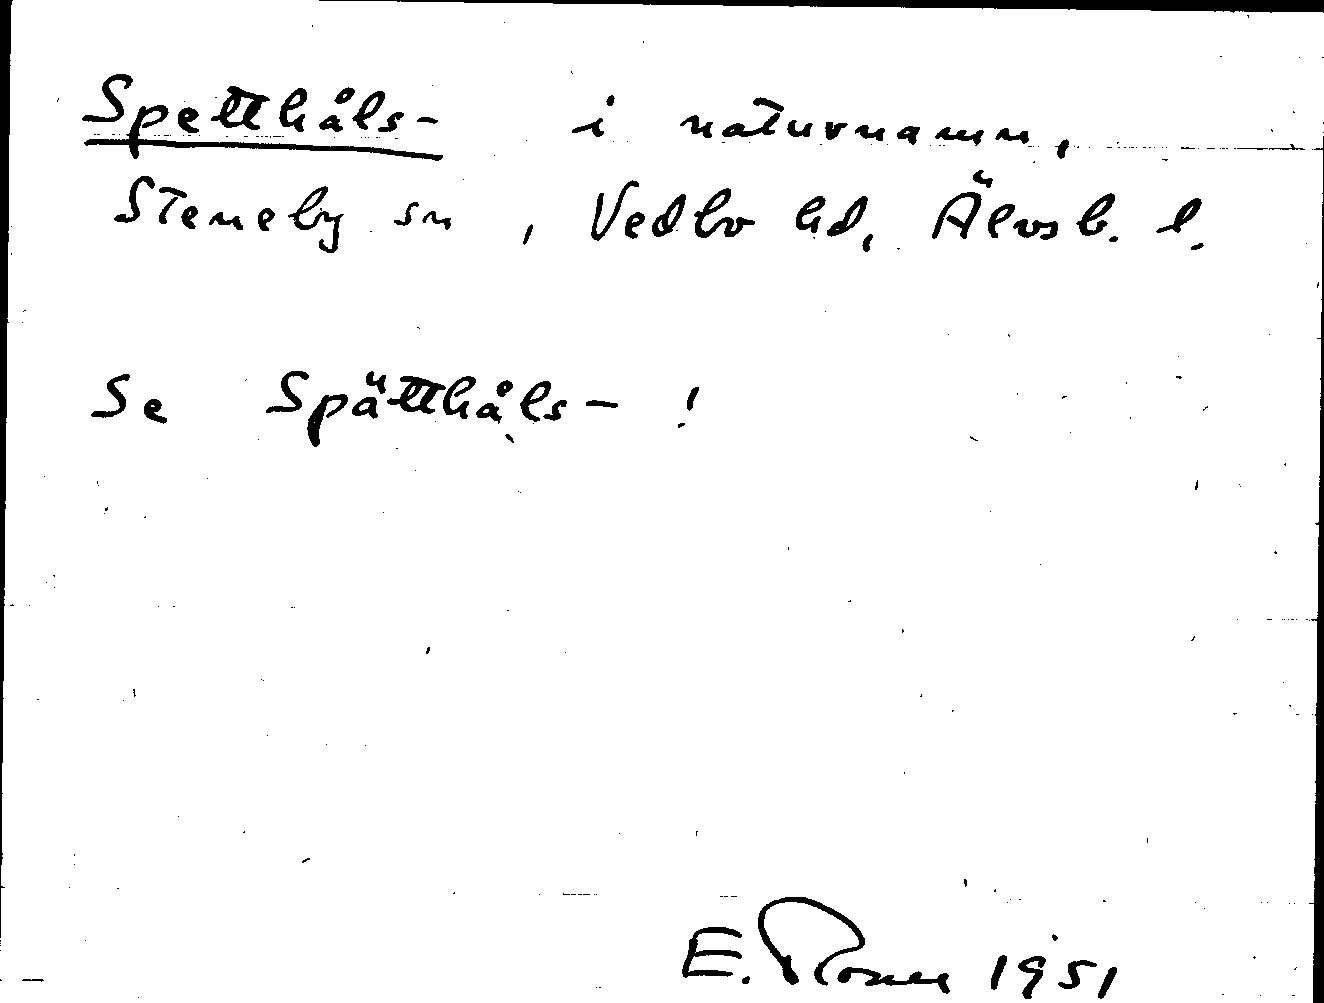 Spetthåls- i naturnamn,
Steneby sn, Vedbo hd, Älvsb. l.
Se Spätthåls- !
E. 1951